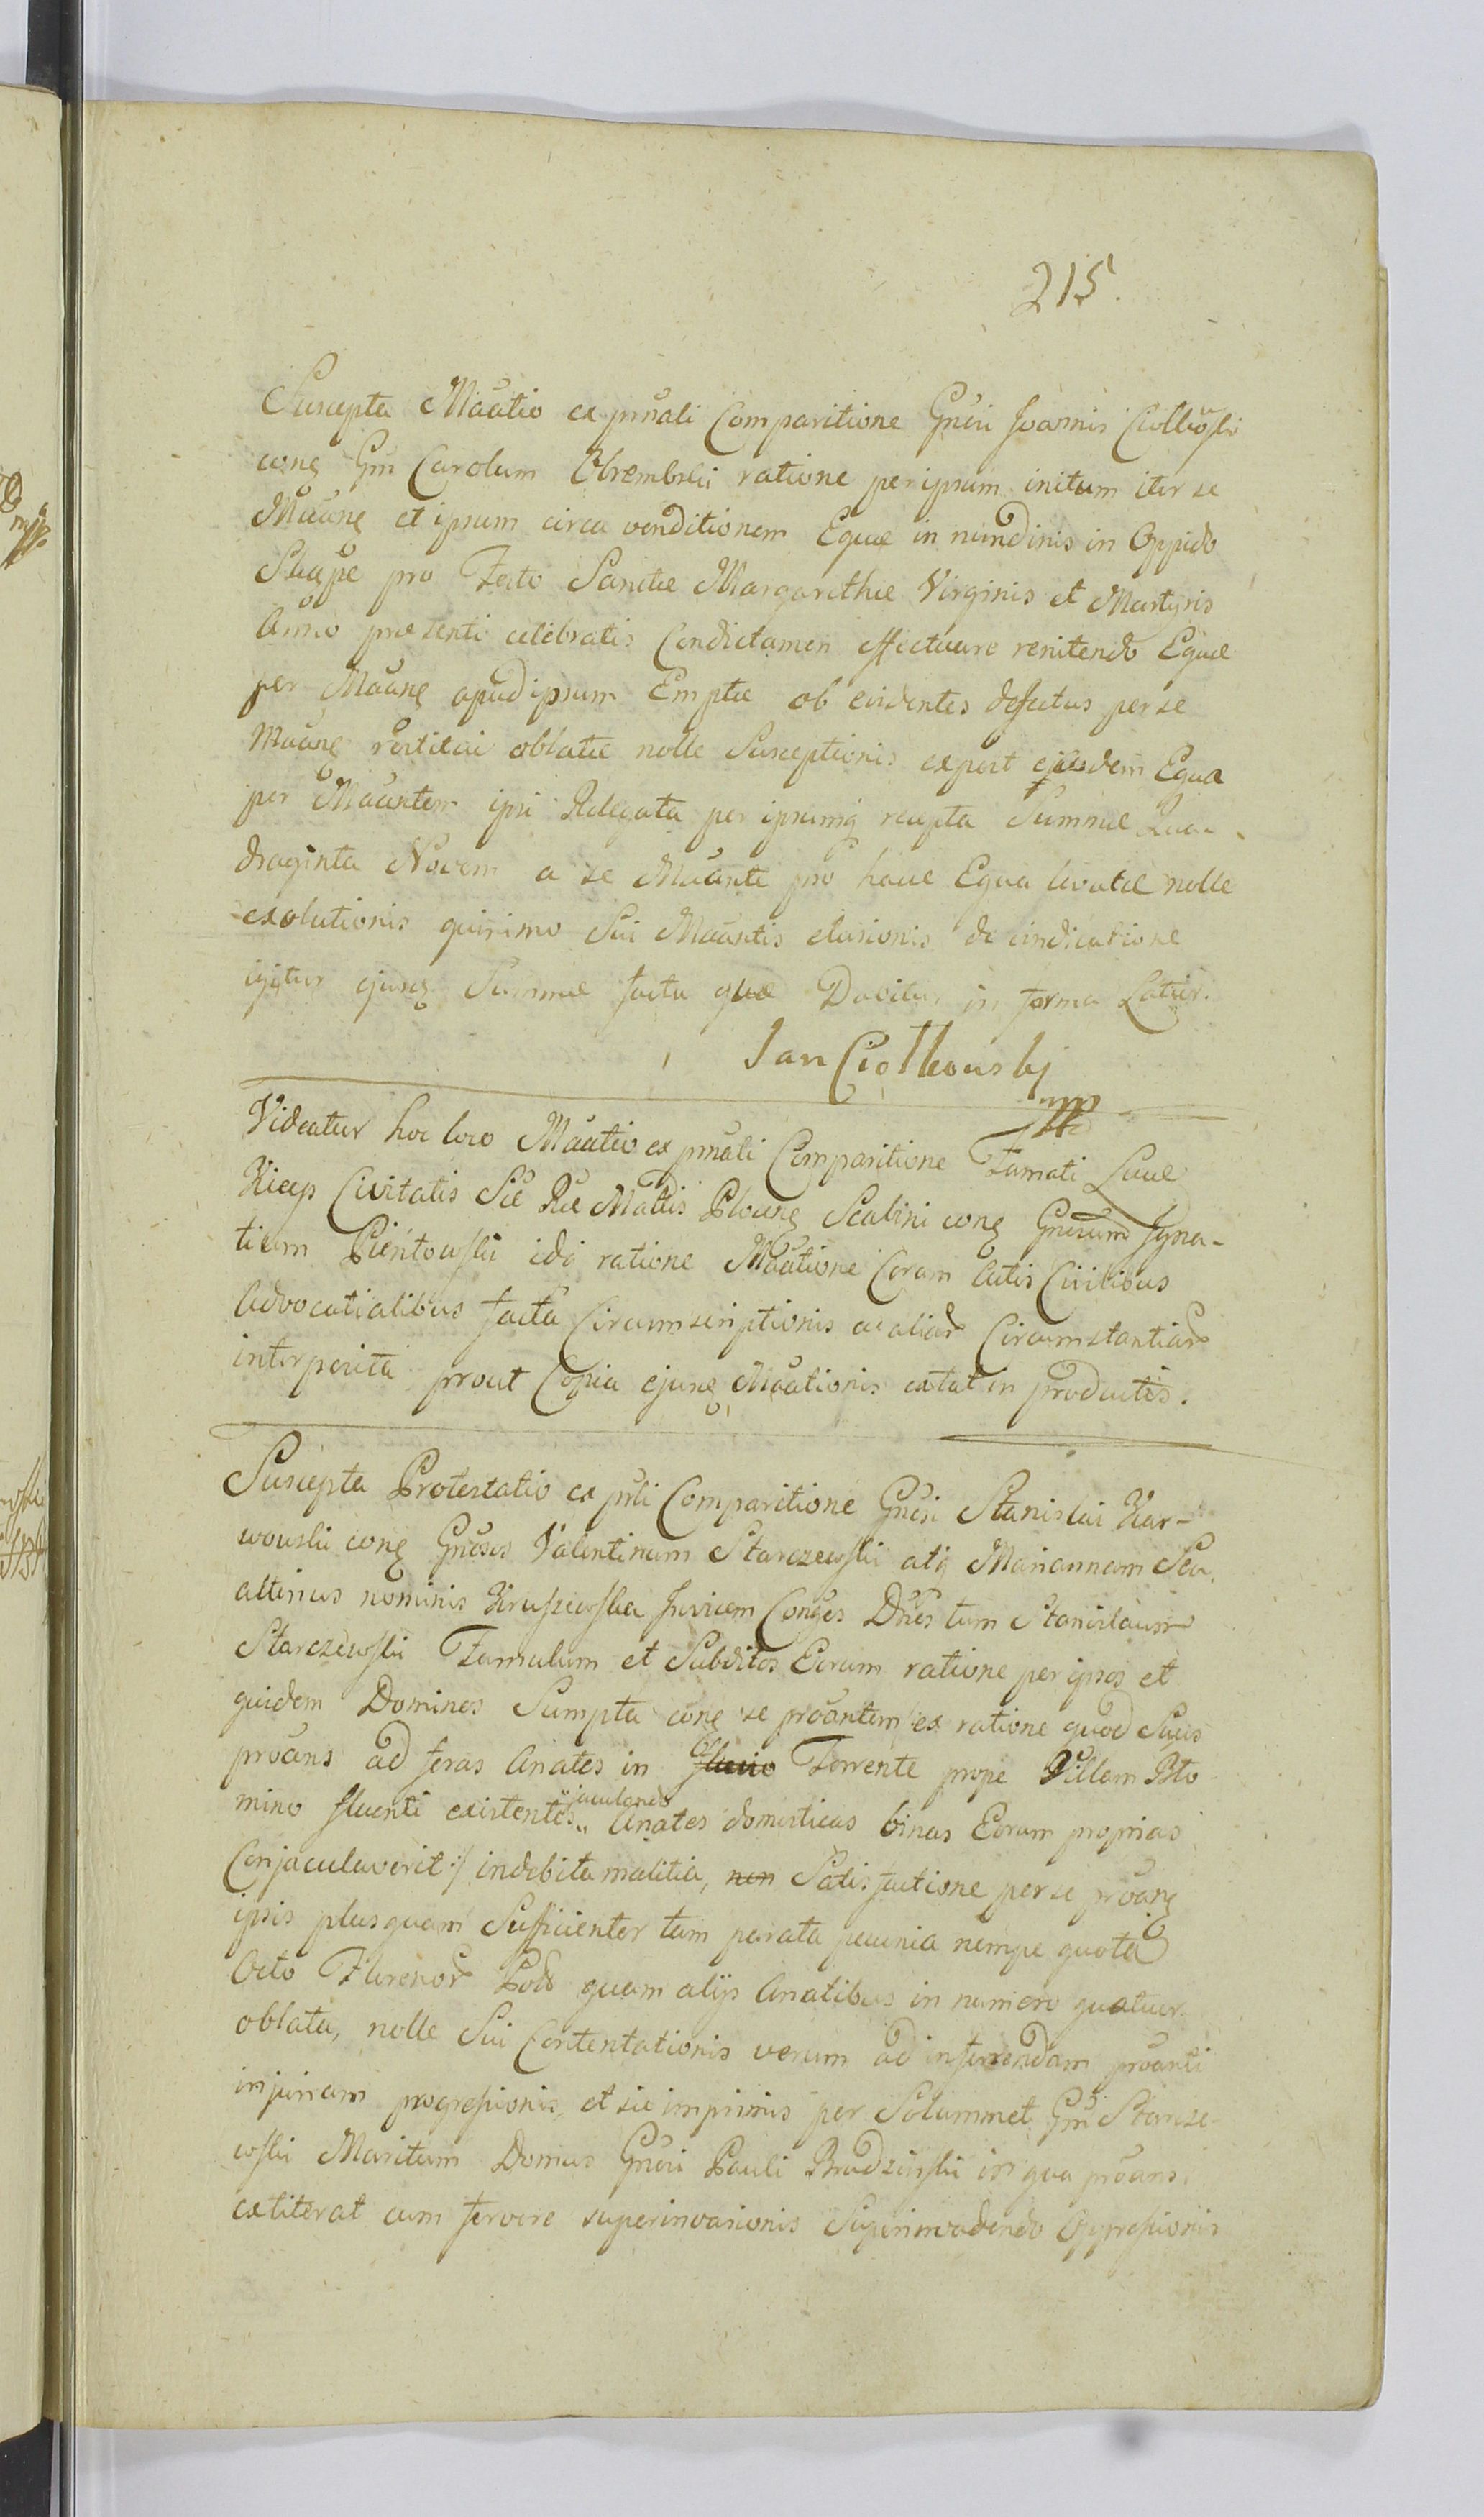 215.
Suscepta Māātio ex pnnali Comparitione Gnūsi Joannis Ciolkowski
conq Gm Carolum Obrembski ratione per ipsum initum iter se
Māānq et ipsum circa venditionem Equae in nundinis in Oppido
Skape pro Festo Sanctae Margarethae Virginis et Martyris
Anno praesenti celebratis Condictamen effectuare renitendo Equae
per Māānq apud ipsum Emptae ob evidentes defectus per se
Māānq restitui oblatae nolle Susceptionis expost ejusdem Equa
per Māāntem ipsi Relegata per ipsumq recepta Summae Qua-
draginta Novem a se Māānte pro hacce Equa levatae nolle
exolutionis quinimo Sui Māāntis elusionis de vindicatione
igitur ejusq Summae facta quae Dabitur in forma Latiūr.
Jan Ciolkowsky
mpp
Videatur hoc loco Māātio ex pnnali Comparitione Famati Lucae
Kicep Civitatis Sāe Rāe Māttis Plocenq Scabini conq Gnūsum Igna-
tium Pientowski idq ratione Māātione Coram Actis Civilibus
Advocatialibus facta Circumscriptionis ac aliar Circumstantiar
interposita prout Copia ejusq Māātionis extat in productis.
Suscepta Protestatio ex pnli Comparitione Gnūsi Stanislai Kar-
wowski conq Gnūsos Valentinum Starczewski atq Mariannam Seu
alterius nominis Kruszewska Invicem Conges Dnōs tum Stanislaum
Starczewski Famulum et Subditos Eorum ratione per ipsos et
quidem Dominos Sumpta conq se prōāntem ex ratione quod Suus
prōāns ad feras Anates in fluvio Torrente prope Villam Pto
mino fluenti existentes jaculando Anates domesticas binas Eorum proprias
Conjaculaverit :/ indebita malitia, non Satisfactione per se prōānq
ipsis plusquam Sufficienter tam parata pecunia nempe quota
Octo Florenor Pols quam alijs Anatibus in numero quatuor
oblata, nolle Sui Contentationis verum ad inferrendam prōānti
injuriam progressionis, et sic imprimis per Solummet Gm Starcze-
wski Maritum Domus Gnūsi Pauli Brudzinski in qua prōāns
extiterat cum fervore superinvasionis Superinvadendo Oppressionis